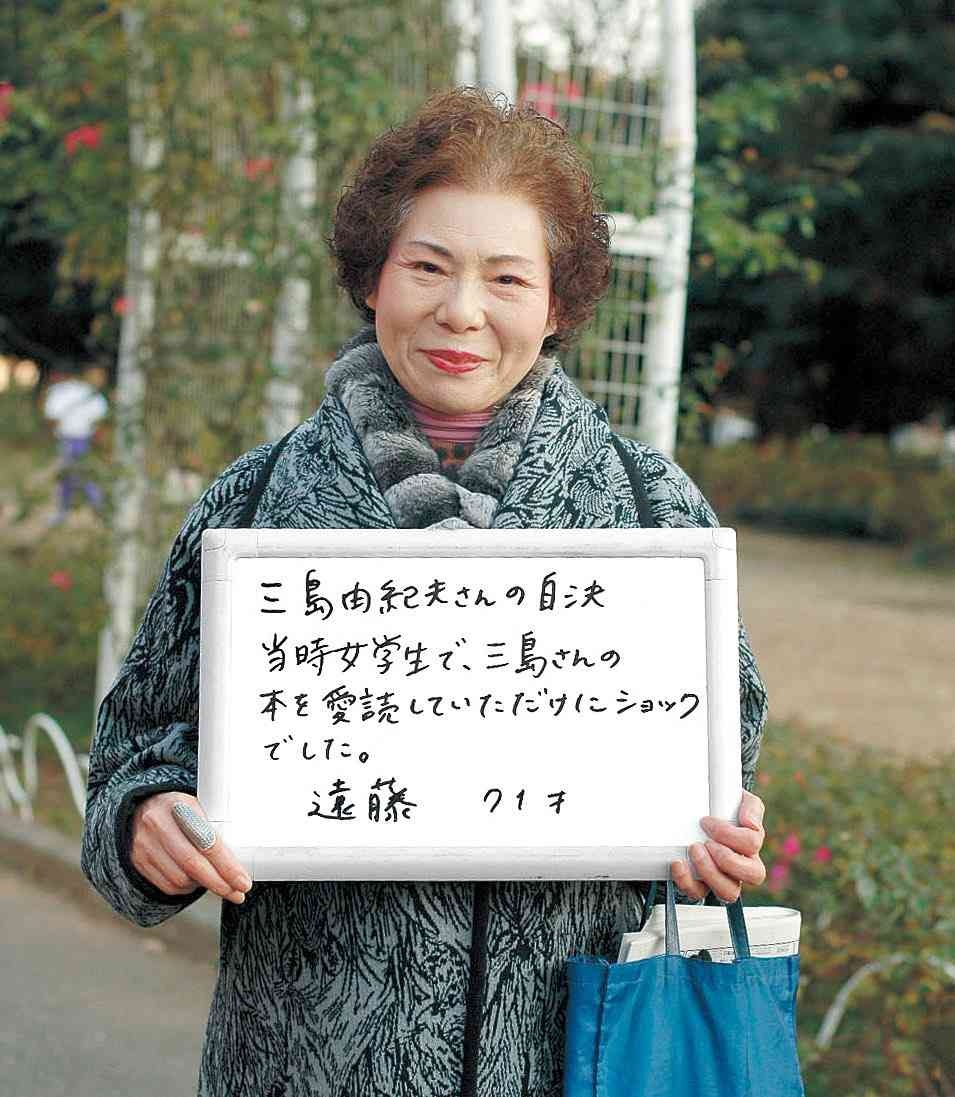 三島由紀夫さんの自決
当時女学生で、三島さんの
本を愛読していただけにショック
でした。
遠藤 71才